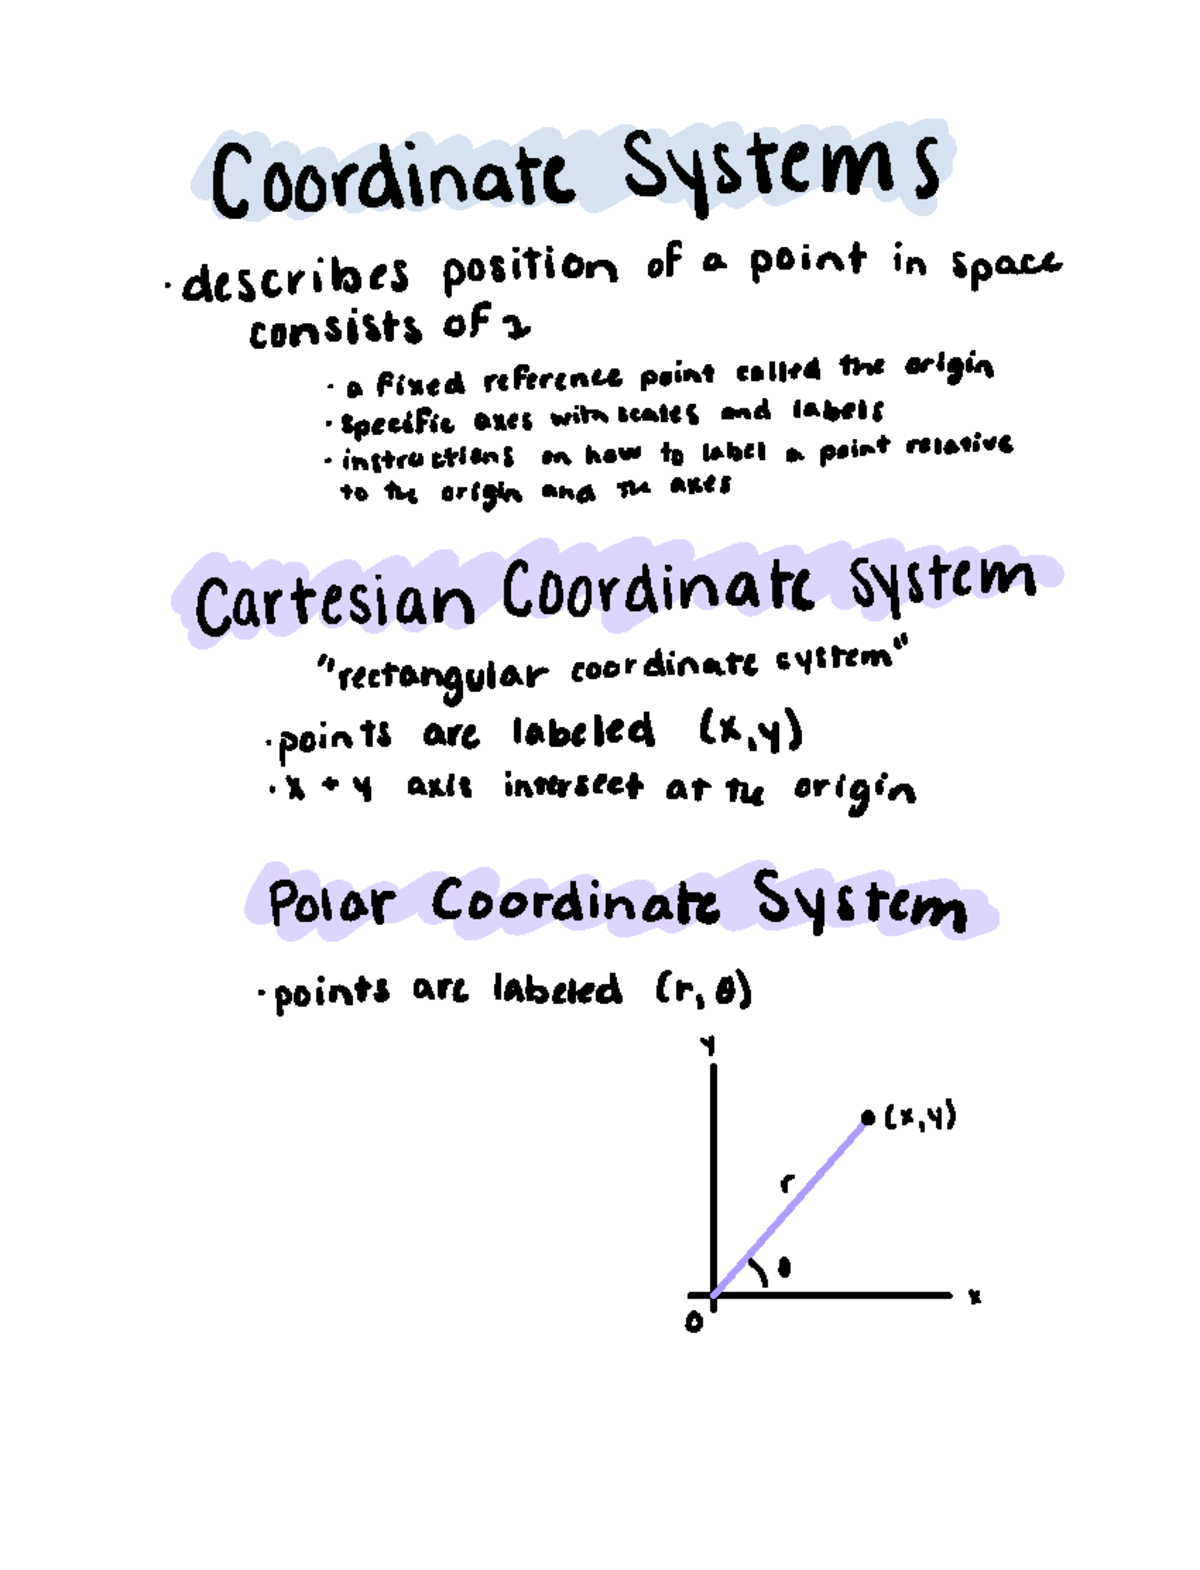 Coordinate Systems
· describes position of a point in space
consists of 2
· a fixed reference point called the origin
· specific axes with scales and labels
· instructions on how to label a point relative
to the origin and the axes
Cartesian Coordinate System
"rectangular coordinate system"
· points are labeled (x,y)
· x + y axis intersect at the origin
Polar Coordinate System
· points are labeled (r, θ)
y
(x,y)
r
θ
x
0